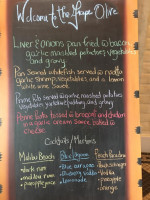 Welcome to the Grape Olive
Liver & Onions pan fried w/ bacon,
garlic mashed potatoes, vegetables
and gravy
Pan Seared whitefish served w/
garlic shrimp, vegetables and a lemon
white wine sauce
Prime Rib garlic mashed potatoes
vegetables, yorkshire pudding and gravy
Penne tossed w/ broccoli and chicken
in a garlic cream sauce baked w/
cheese
Cocktails / Martinis
Malibu Beach
Blue Lagoon
Peach Paradise
• dark rum
• malibu rum
• pineapple juice
• blue curacao
• vodka
• lemonade
• peach schnapps
• vodka
• pineapple
• orange